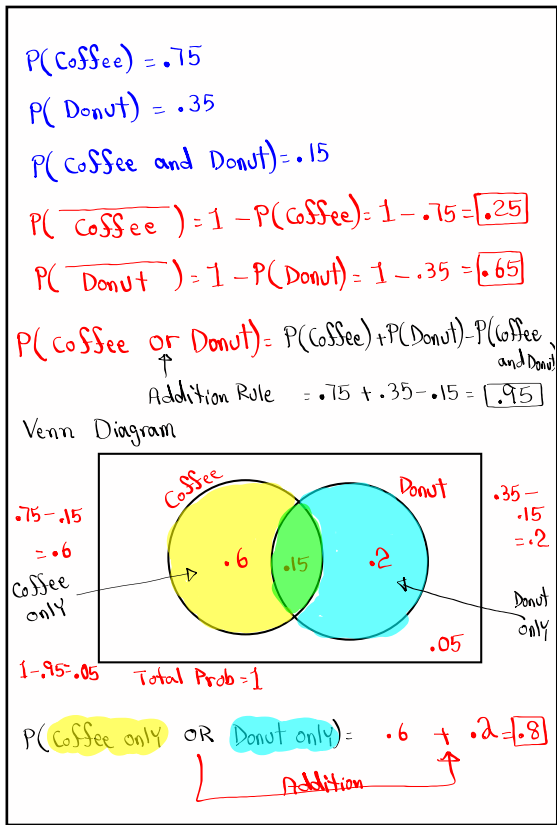 P(Coffee) = .75
P( Donut) = .35
P( Coffee and Donut) = .15
P( \overline{Coffee} ) = 1 - P(Coffee) = 1 - .75 = .25
P( \overline{Donut} ) = 1 - P(Donut) = 1 - .35 = .65
P( Coffee or Donut) = P(Coffee) + P(Donut) - P(Coffee and Donut)
Addition Rule = .75 + .35 - .15 = .95
Venn Diagram
Coffee
Donut
.75 - .15
= .6
.35 -
.15
= .2
.6
.15
.2
Coffee
only
Donut
only
.05
1-.95=.05
Total Prob = 1
P( Coffee only OR Donut only) = .6 + .2 = .8
Addition